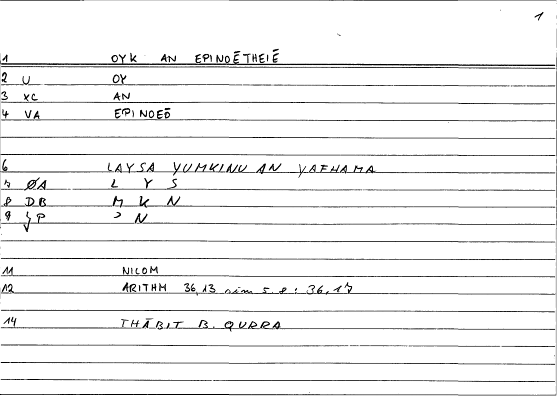 1
1 OYK AN EPINOĒTHEIĒ
2 U OY
3 XC AN
4 VA EPINOEŌ
6 LAYSA YUMKINU AN YAFHAMA
7 ØA L Y S
8 DB M K N
9 P ʾ N
11 NICOM
12 ARITHM 36,13 sim 5.8: 36,17
14 THĀBIT B. QURRA